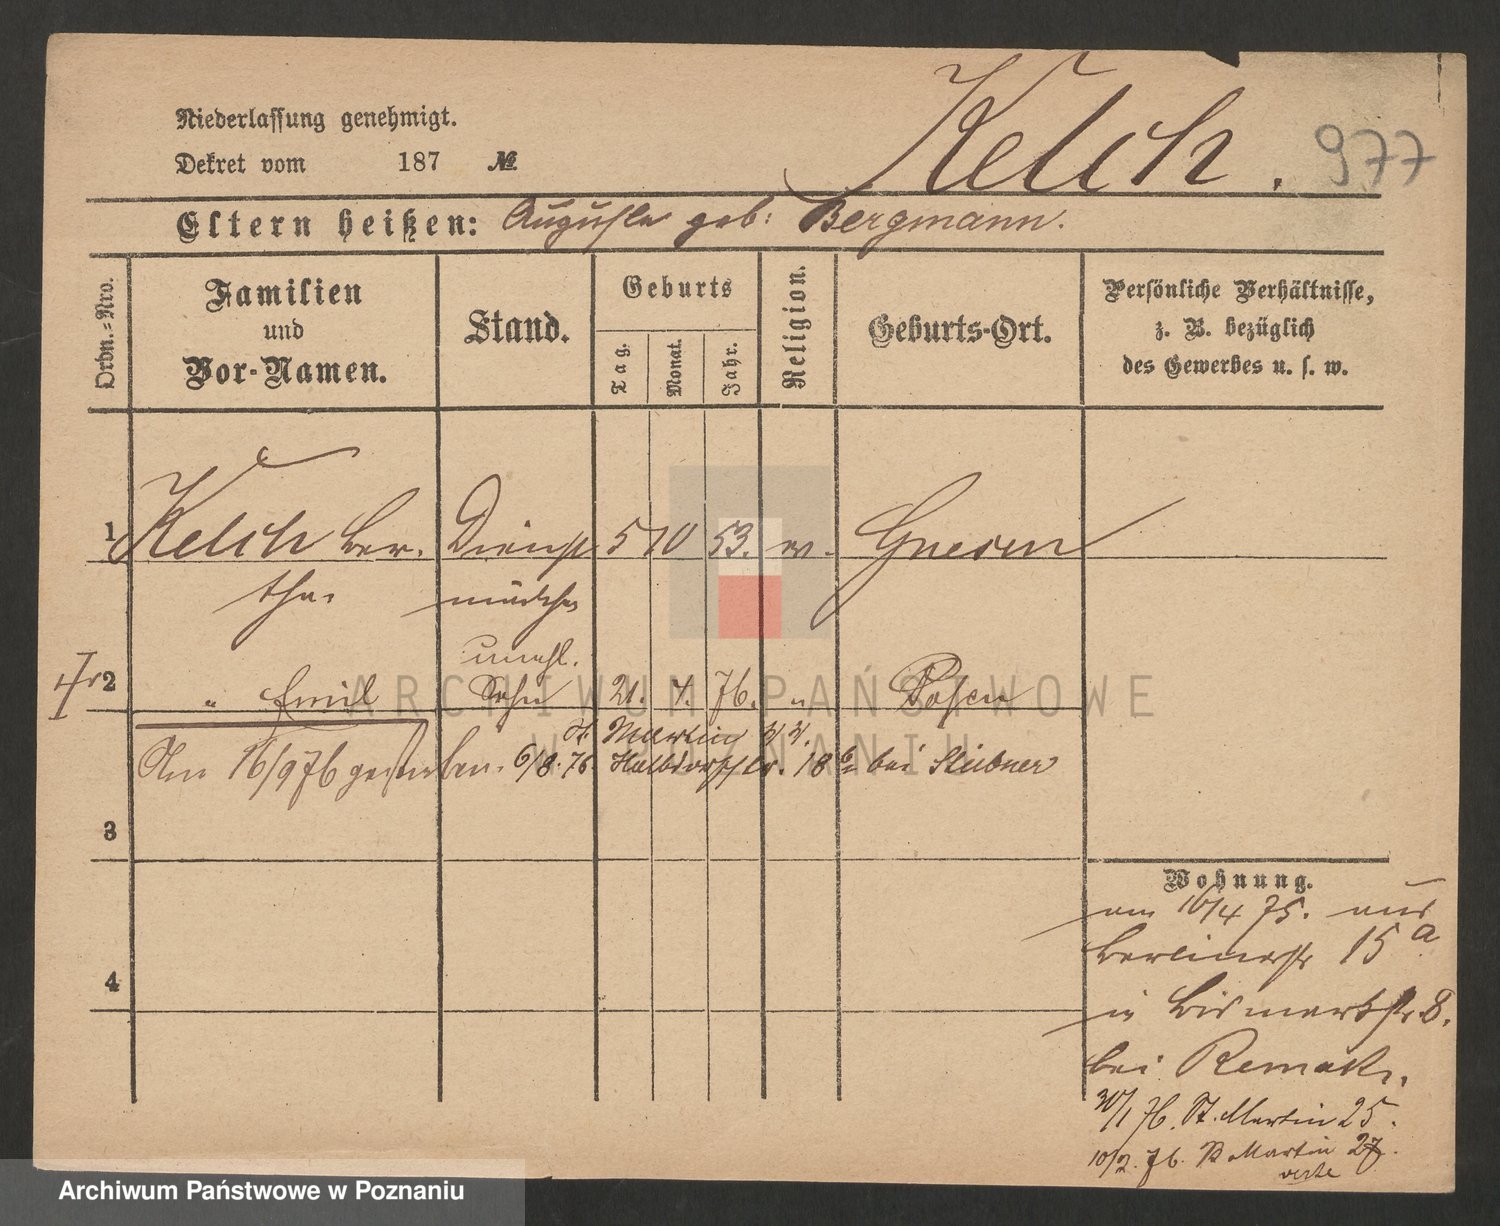 Niederlassung genehmigt.
Dekret vom 187 №
Kelch. 977
Eltern heißen: Auguste geb: Bergmann.
Ordn.=Nro.
Familien
und
Vor-Namen.
Stand.
Geburts
Tag.
Monat.
Jahr.
Religion.
Geburts-Ort.
Persönliche Verhältnisse,
z. B. bezüglich
des Gewerbes u. s. w.
1 Kelch Ber- Dienst 5 10 53. ev. Gnesen
tha. mädchen
unehl.
2 " Emil Sohn 21. 4. 76. " Posen
St. Martin
Am 16/9 76 gestorben. 6/8. 76. Halbdorfstr. 18 bei Stübner
3
4
Wohnung.
am 16/4 75. aus
Berlinerstr 15 a
in Bismarkstr 8.
bei Remak.
30/1 76. St. Martin 25.
10/2. 76. St Martin 27.
verte
ARCHIWUM PAŃSTWOWE
W POZNANIU
Archiwum Państwowe w Poznaniu